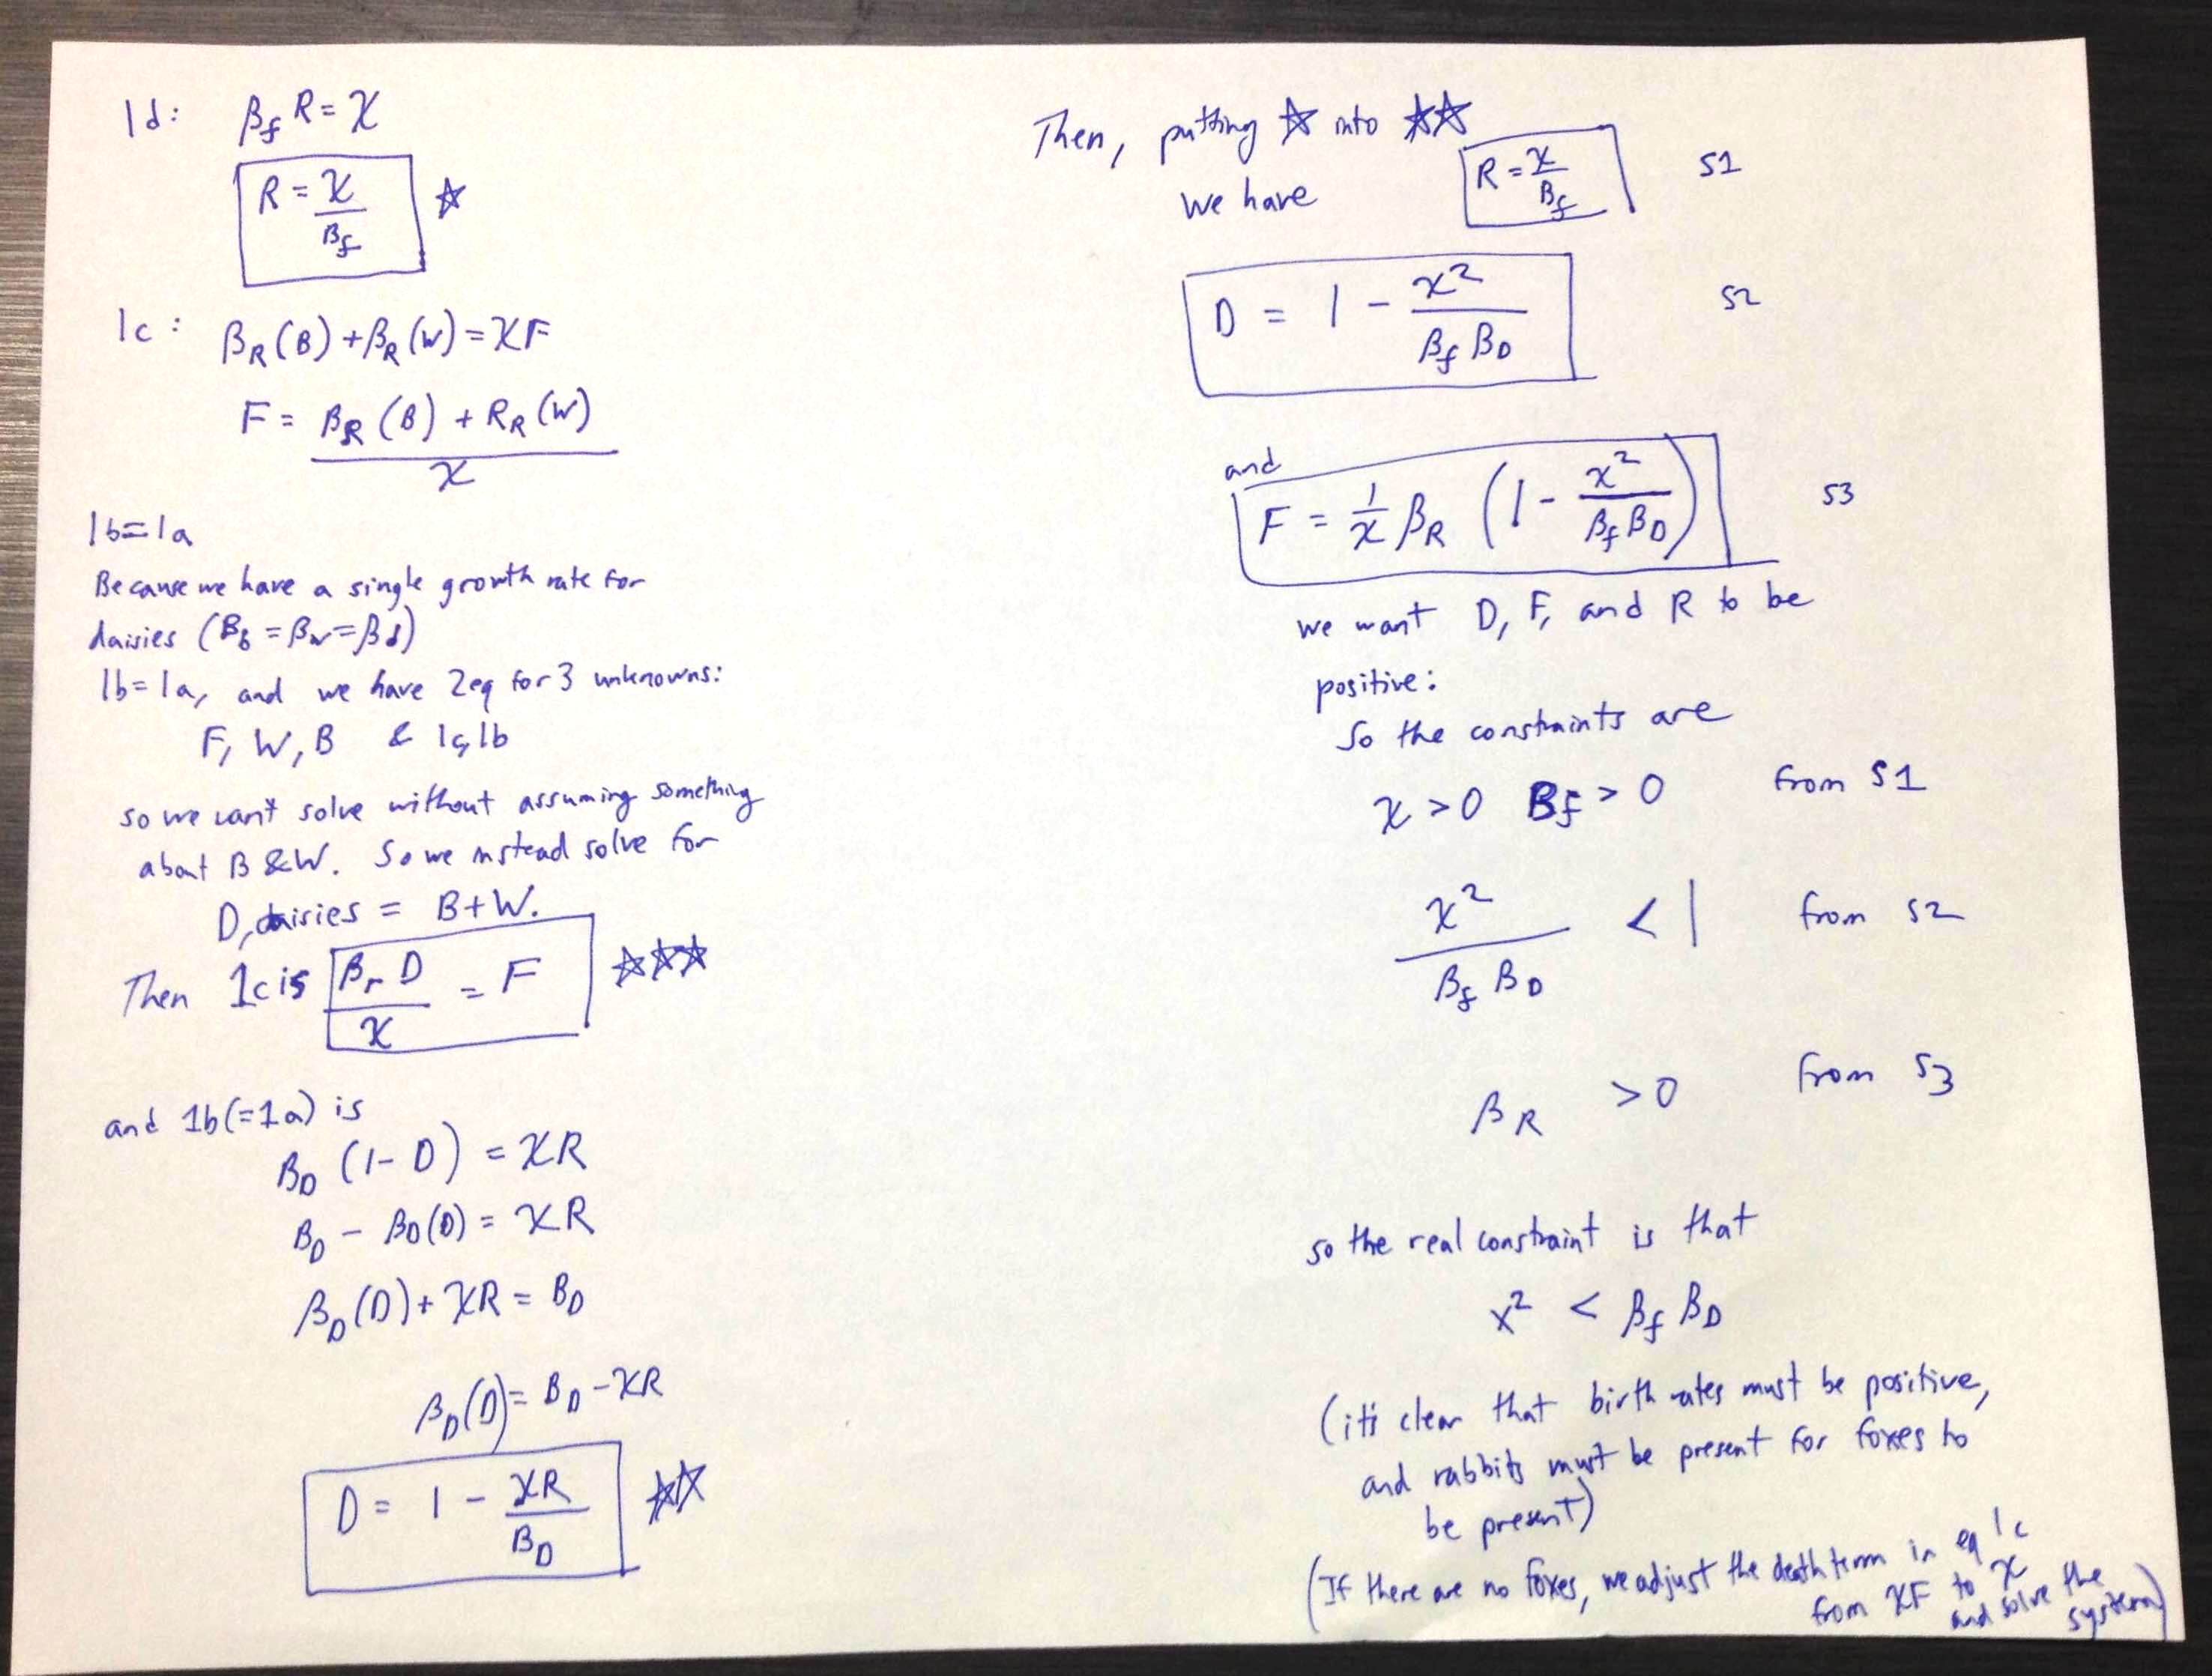 1d: β_f R = χ
R = χ/β_f ☆
1c: β_R(B) + β_R(W) = χF
F = (β_R(B) + R_R(W))/χ
1b=1a
Because we have a single growth rate for
daisies (B_b = β_w = β_d)
1b=1a, and we have 2eq for 3 unknowns:
F, W, B & 1c, 1b
so we can't solve without assuming something
about B & W. So we instead solve for
D, daisies = B+W.
Then 1c is β_r D/χ = F ☆☆☆
and 1b(=1a) is
β_D (1-D) = χR
β_D - β_D(D) = χR
β_D(D) + χR = β_D
β_D(D) = β_D - χR
D = 1 - χR/β_D ☆☆
Then, putting ☆ into ☆☆
we have R = χ/β_f S1
D = 1 - χ²/(β_f β_D) S2
and
F = 1/χ β_R (1 - χ²/(β_f β_D)) S3
we want D, F, and R to be
positive:
So the constraints are
χ > 0 β_f > 0 from S1
χ²/(β_f β_D) < 1 from S2
β_R > 0 from S3
so the real constraint is that
χ² < β_f β_D
(it's clear that birth rates must be positive,
and rabbits must be present for foxes to
be present)
(If there are no foxes, we adjust the death term in eq 1c
from χF to χ
and solve the
system)